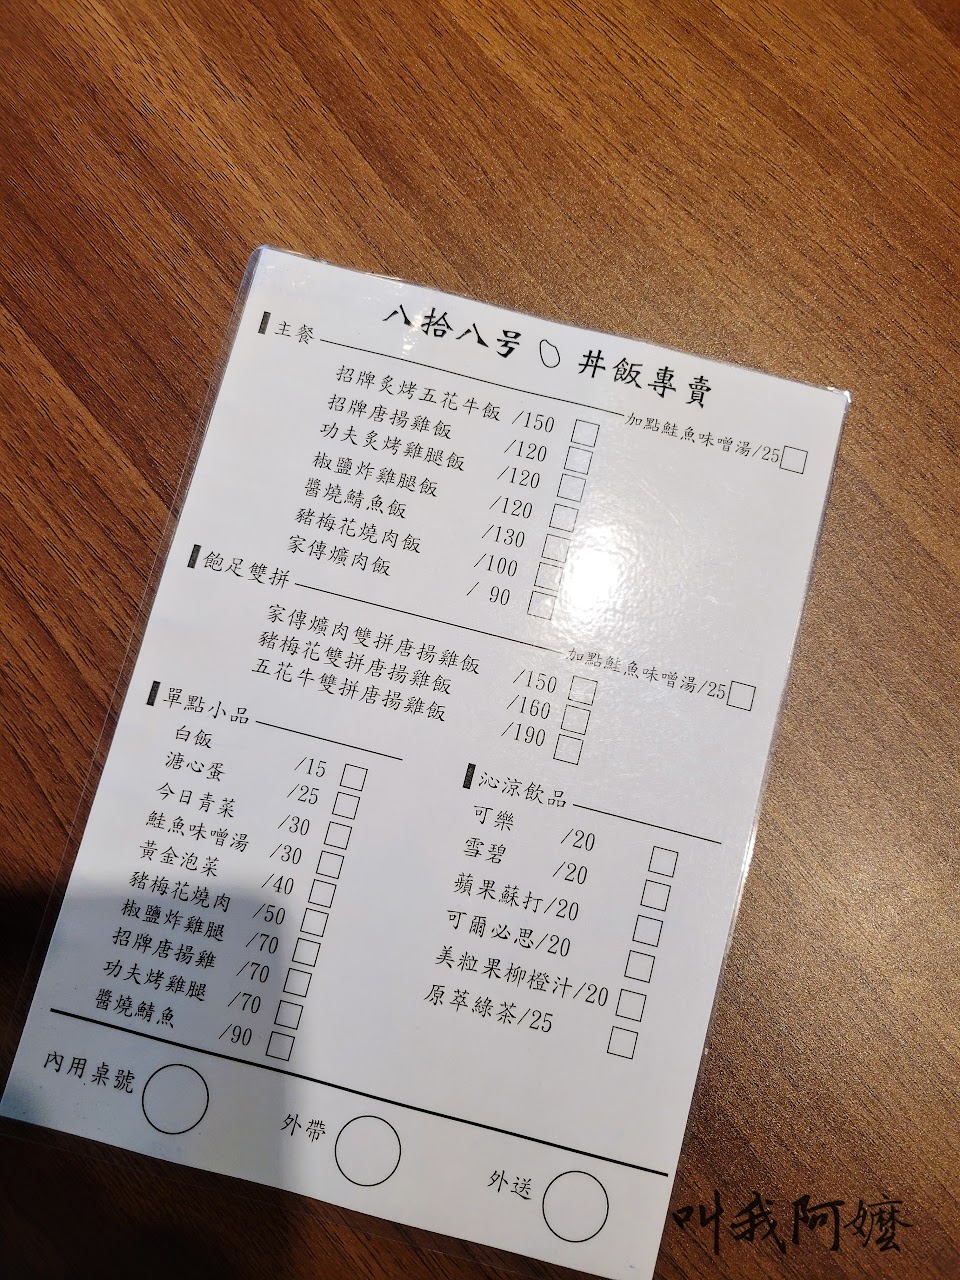 八拾八号 丼飯專賣
主餐
加點鮭魚味噌湯/25
招牌炙烤五花牛飯 /150
招牌唐揚雞飯 /120
功夫炙烤雞腿飯 /120
椒鹽炸雞腿飯 /120
醬燒鯖魚飯 /130
豬梅花燒肉飯 /100
家傳爌肉飯 / 90
飽足雙拼
加點鮭魚味噌湯/25
家傳爌肉雙拼唐揚雞飯 /150
豬梅花雙拼唐揚雞飯 /160
五花牛雙拼唐揚雞飯 /190
單點小品
白飯 /15
溏心蛋 /25
今日青菜 /30
鮭魚味噌湯 /30
黃金泡菜 /40
豬梅花燒肉 /50
椒鹽炸雞腿 /70
招牌唐揚雞 /70
功夫烤雞腿 /70
醬燒鯖魚 /90
沁涼飲品
可樂 /20
雪碧 /20
蘋果蘇打/20
可爾必思/20
美粒果柳橙汁/20
原萃綠茶/25
內用桌號
外帶
外送
叫我阿嬤